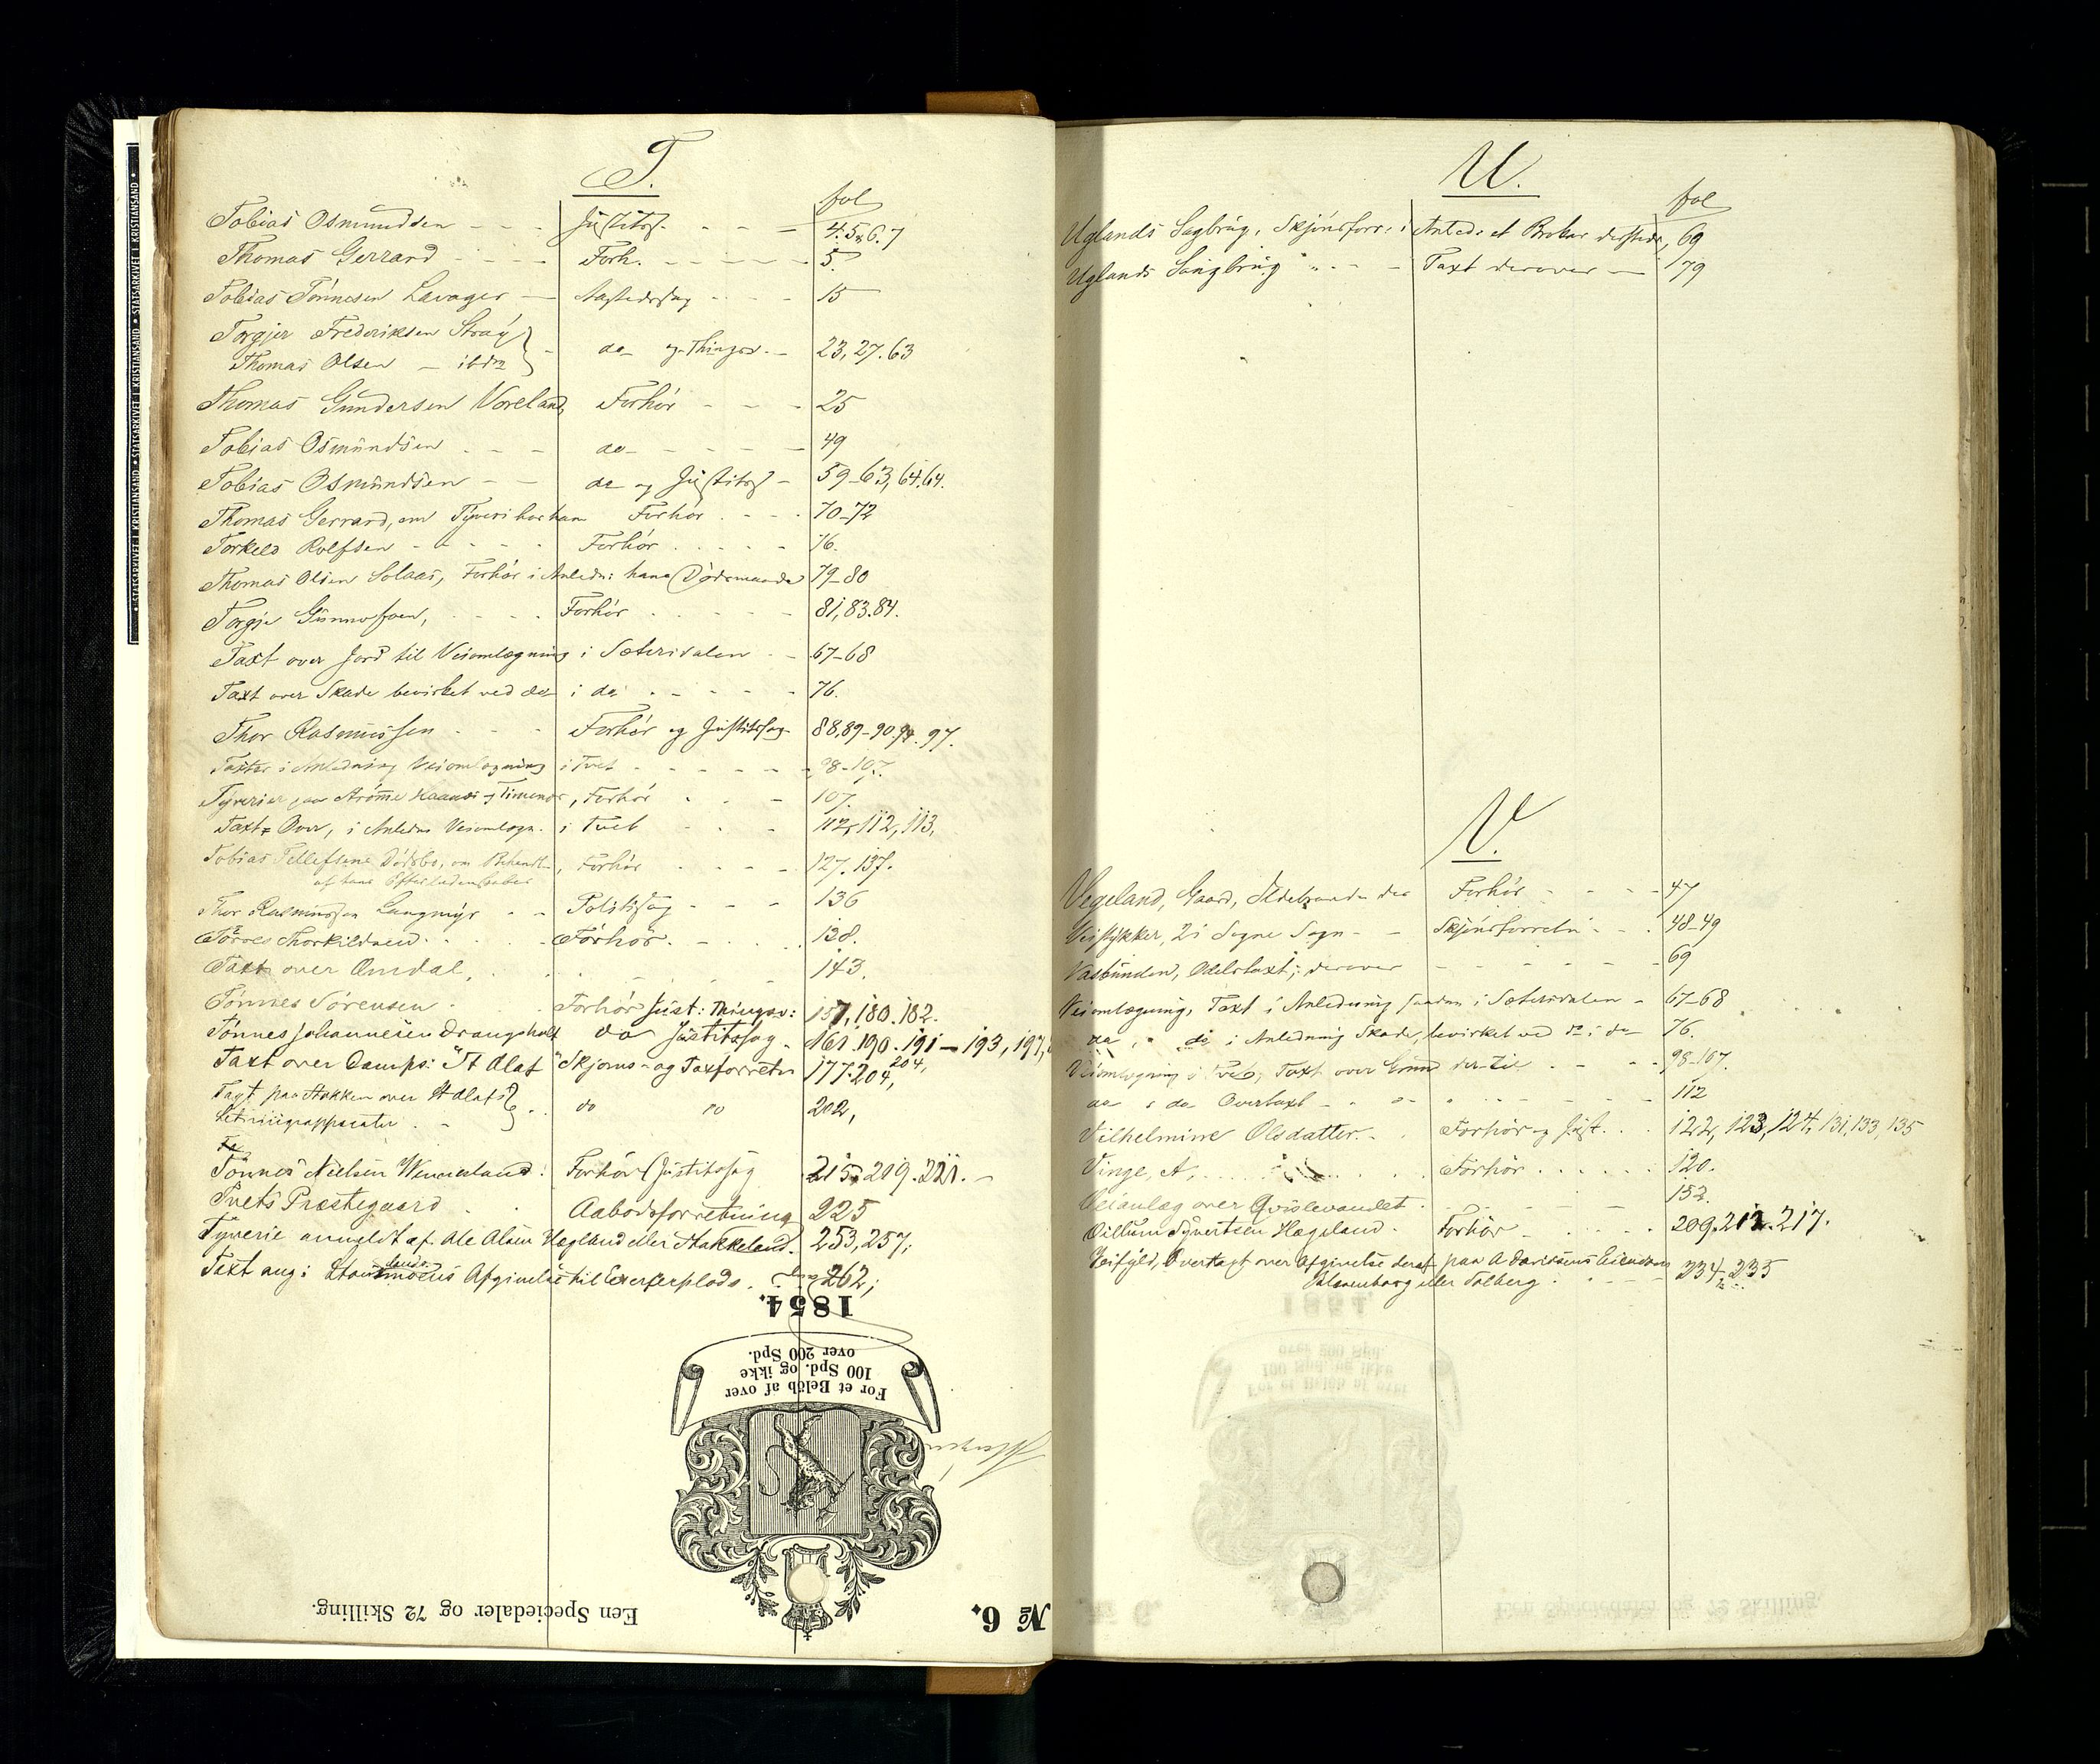 T.
fol
Tobias Osmundsen - - - Justitss. - - - 4.5.6.7
Thomas Gerrard - - - Forh. - - - 5
Tobias Tönnesen Lavager - Aastedssag - - - 15
Torgjer Frederiksen Straÿ
Thomas Olsen - ibdm } do og Thingsv. - 23, 27. 63
Thomas Gundersen Voreland Forhör - - - 25
Tobias Osmundsen - - - do - - - 49
Tobias Osmundsen - - do og Justitss - 59-63, 64.64.
Thomas Gerrard, om Tyveri hos ham Forhör - - - 70-72
Torkeld Rolfsen - - - Forhör - - - 76.
Thomas Olsen Solaas, Forhör i Anledn: hans Dödsmaade 79-80
Torgje Gunnufsen, - - - Forhör - - - 81, 83.84.
Taxt over Jord til Veiomlægning i Sætersdalen - - 67-68
Taxt over Skade bevirket ved do i do - - - 76.
Thor Rasmussen - - - Forhör og Justitssag 88,89-90.94. 97.
Taxter i Anledning Veiomlægning i Tvet - - - 98-107.
Tyverier paa Strömme Haanæs og Timenes, Forhör - - 107.
Taxt, Over, i Anledn Veiomlægn. i Tvet - - - 112, 112, 113,
Tobias Tellefsens Dödsbo, om Behandl-, Forhör - - - 127. 137.
af hans Efterladenskaber
Thor Rasmussen Langmyr - - Politisag - - - 136
Tarres Thorkildsen - - - Forhör - - - 138.
Taxt over Omdal, - - - 143.
Tönnes Sörensen - Forhör Just: Thingsv: 157, 180. 182.
Tönnes Johannesen Drangsholt do Justitssag - 161. 190. 191 - 193, 197,
Taxt over Damps: "St Olaf" Skjöns- og Taxforretn 177. 204, 204,
Taxt paa Stokken over St Olafs
Letningsapparater - } do do 202,
Tönnes Nielsen Wenneslands: Forhör (Justitssag 215. 219. 221. -
Tvets Præstegaard - - Aabodsforretning 225
Tyverie anmeldt af Ole Olsen Hægland eller Stakkeland. 253, 257,
Taxt ang: moens Afgivelse til Exerserplads. 262;
1854.
For et Belöb af over
100 Spd. og ikke
over 200 Spd.
No 6.
Een Speciedaler og 72 Skilling.
U.
fol
Uglands Sagbrug, Skjönsforr: i Anledn: et Brokar dersteds, 69
Uglands Saugbrug " - - - Taxt derover - 79
V.
Vegeland, Gaard, Ildebrand der Forhör - - - 47
Veistykker, 2 i Sogne Sogn - - Skjönsforretn - - - 48-49
Vasbunden, Odelstaxt; derover - - - 69
Veiomlægning, Taxt i Anledning saadan i Sætersdalen - 67-68
do , " do i Anledning Skade, bevirket ved do i do 76.
Veiomlægning i Tved, Taxt over Grund der-til - - - 98-107.
do i do Overtaxt - - - 112
Vilhelmine Olsdatter. - - Forhör og Just. - - 122, 123, 124, 131, 133, 135
Vinge, A, - - - Forhör - - - 120.
Veianlæg over Qvislevandet - - - 152.
Villum Syvertsen Hægeland - Forhör - - - 209. 212. 217.
Veifyld, Overtaxt over Afgivelse deraf paa A Davidsens Eiendom
Blomenborg eller Solberg : - - - 234, 235
STATSARKIVET I KRISTIANSAND • STATSARKIVET I KRISTIANSAND • STATSARKIVET I KRISTIANSAND